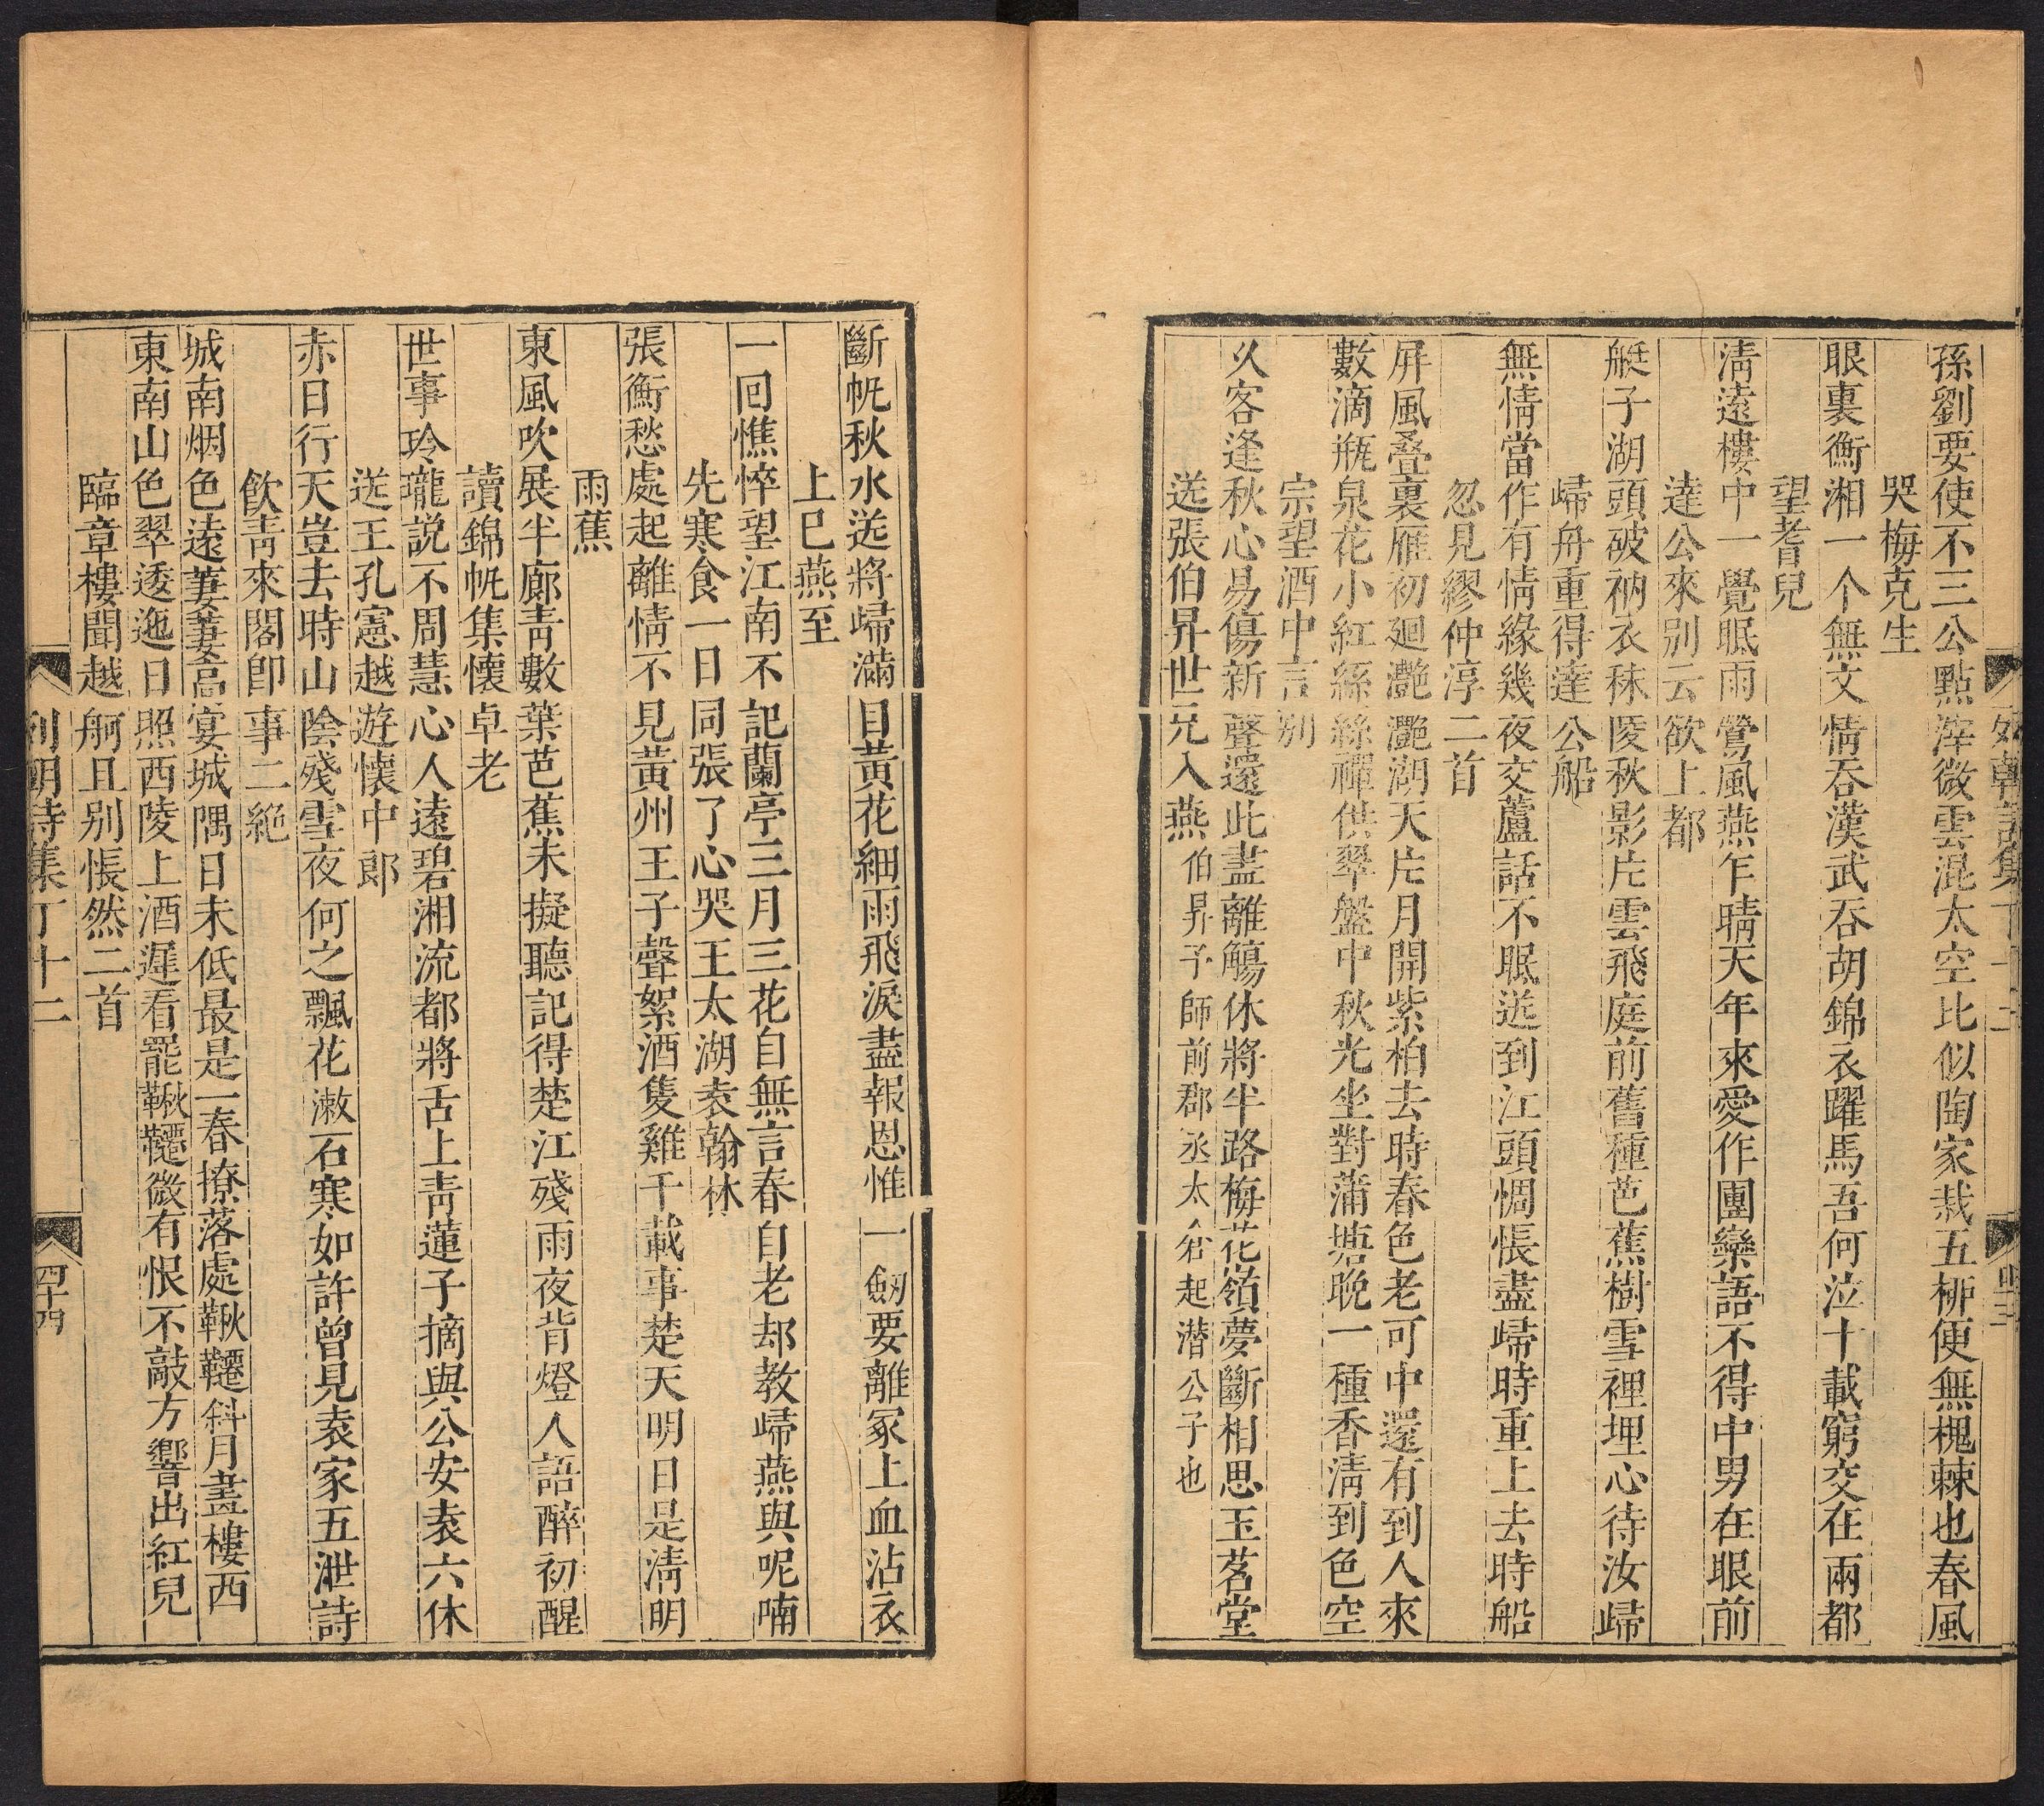 孫劉要使不三公點滓微雲混太空比似陶家栽五栁便無槐棘也春風
哭梅克生
眼裏衡湘一个無文情吞漢武吞胡錦衣躍馬吾何泣十載窮交在兩都
望耆兒
淸遠樓中一覺眠雨鶯風燕乍晴天年來愛作團欒語不得中男在眼前
達公來别云欲上都
艇子湖頭破衲衣秣陵秋影片雲飛庭前舊種芭蕉樹雪裡埋心待汝歸
歸舟重得達公船
無情當作有情緣幾夜交蘆話不眠送到江頭惆悵盡歸時重上去時船
忽見繆仲淳二首
屛風叠裏雁初廻灔灔湖天片月開紫柏去時春色老可中還有到人來
數滴瓶泉花小紅絲絲禪供翠盤中秋光坐對蒲塘晚一種香淸到色空
宗望酒中言别
久客逢秋心易傷新聲還此盡離觴休將半路梅花嶺夢斷相思玉茗堂
送張伯昇世兄入燕 伯昇予師前郡丞太倉起潛公子也
斷帆秋水送將歸滿目黃花細雨飛淚盡報恩惟一劒要離冢上血沾衣
上巳燕至
一回憔悴望江南不記蘭亭三月三花自無言春自老却教歸燕與呢喃
先寒食一日同張了心哭王太湖袁翰林
張衡愁處起離情不見黃州王子聲絮酒隻雞千載事楚天明日是淸明
雨蕉
東風吹展半廊靑數葉芭蕉未擬聽記得楚江殘雨夜背燈人語醉初醒
讀錦帆集懷卓老
世事玲瓏説不周慧心人遠碧湘流都將舌上靑蓮子摘與公安袁六休
送王孔憲越遊懷中郎
赤日行天豈去時山陰殘雪夜何之飄花潄石寒如許曾見袁家五泄詩
飮靑來閣卽事二絶
城南烟色遠萋萋高宴城隅日未低最是一春撩落處鞦韆斜月畫樓西
東南山色翠逶迤日照西陵上酒遲看罷鞦韆微有恨不敲方響出紅兒
臨章樓聞越舸且别悵然二首
列朝詩集丁十二
四十四